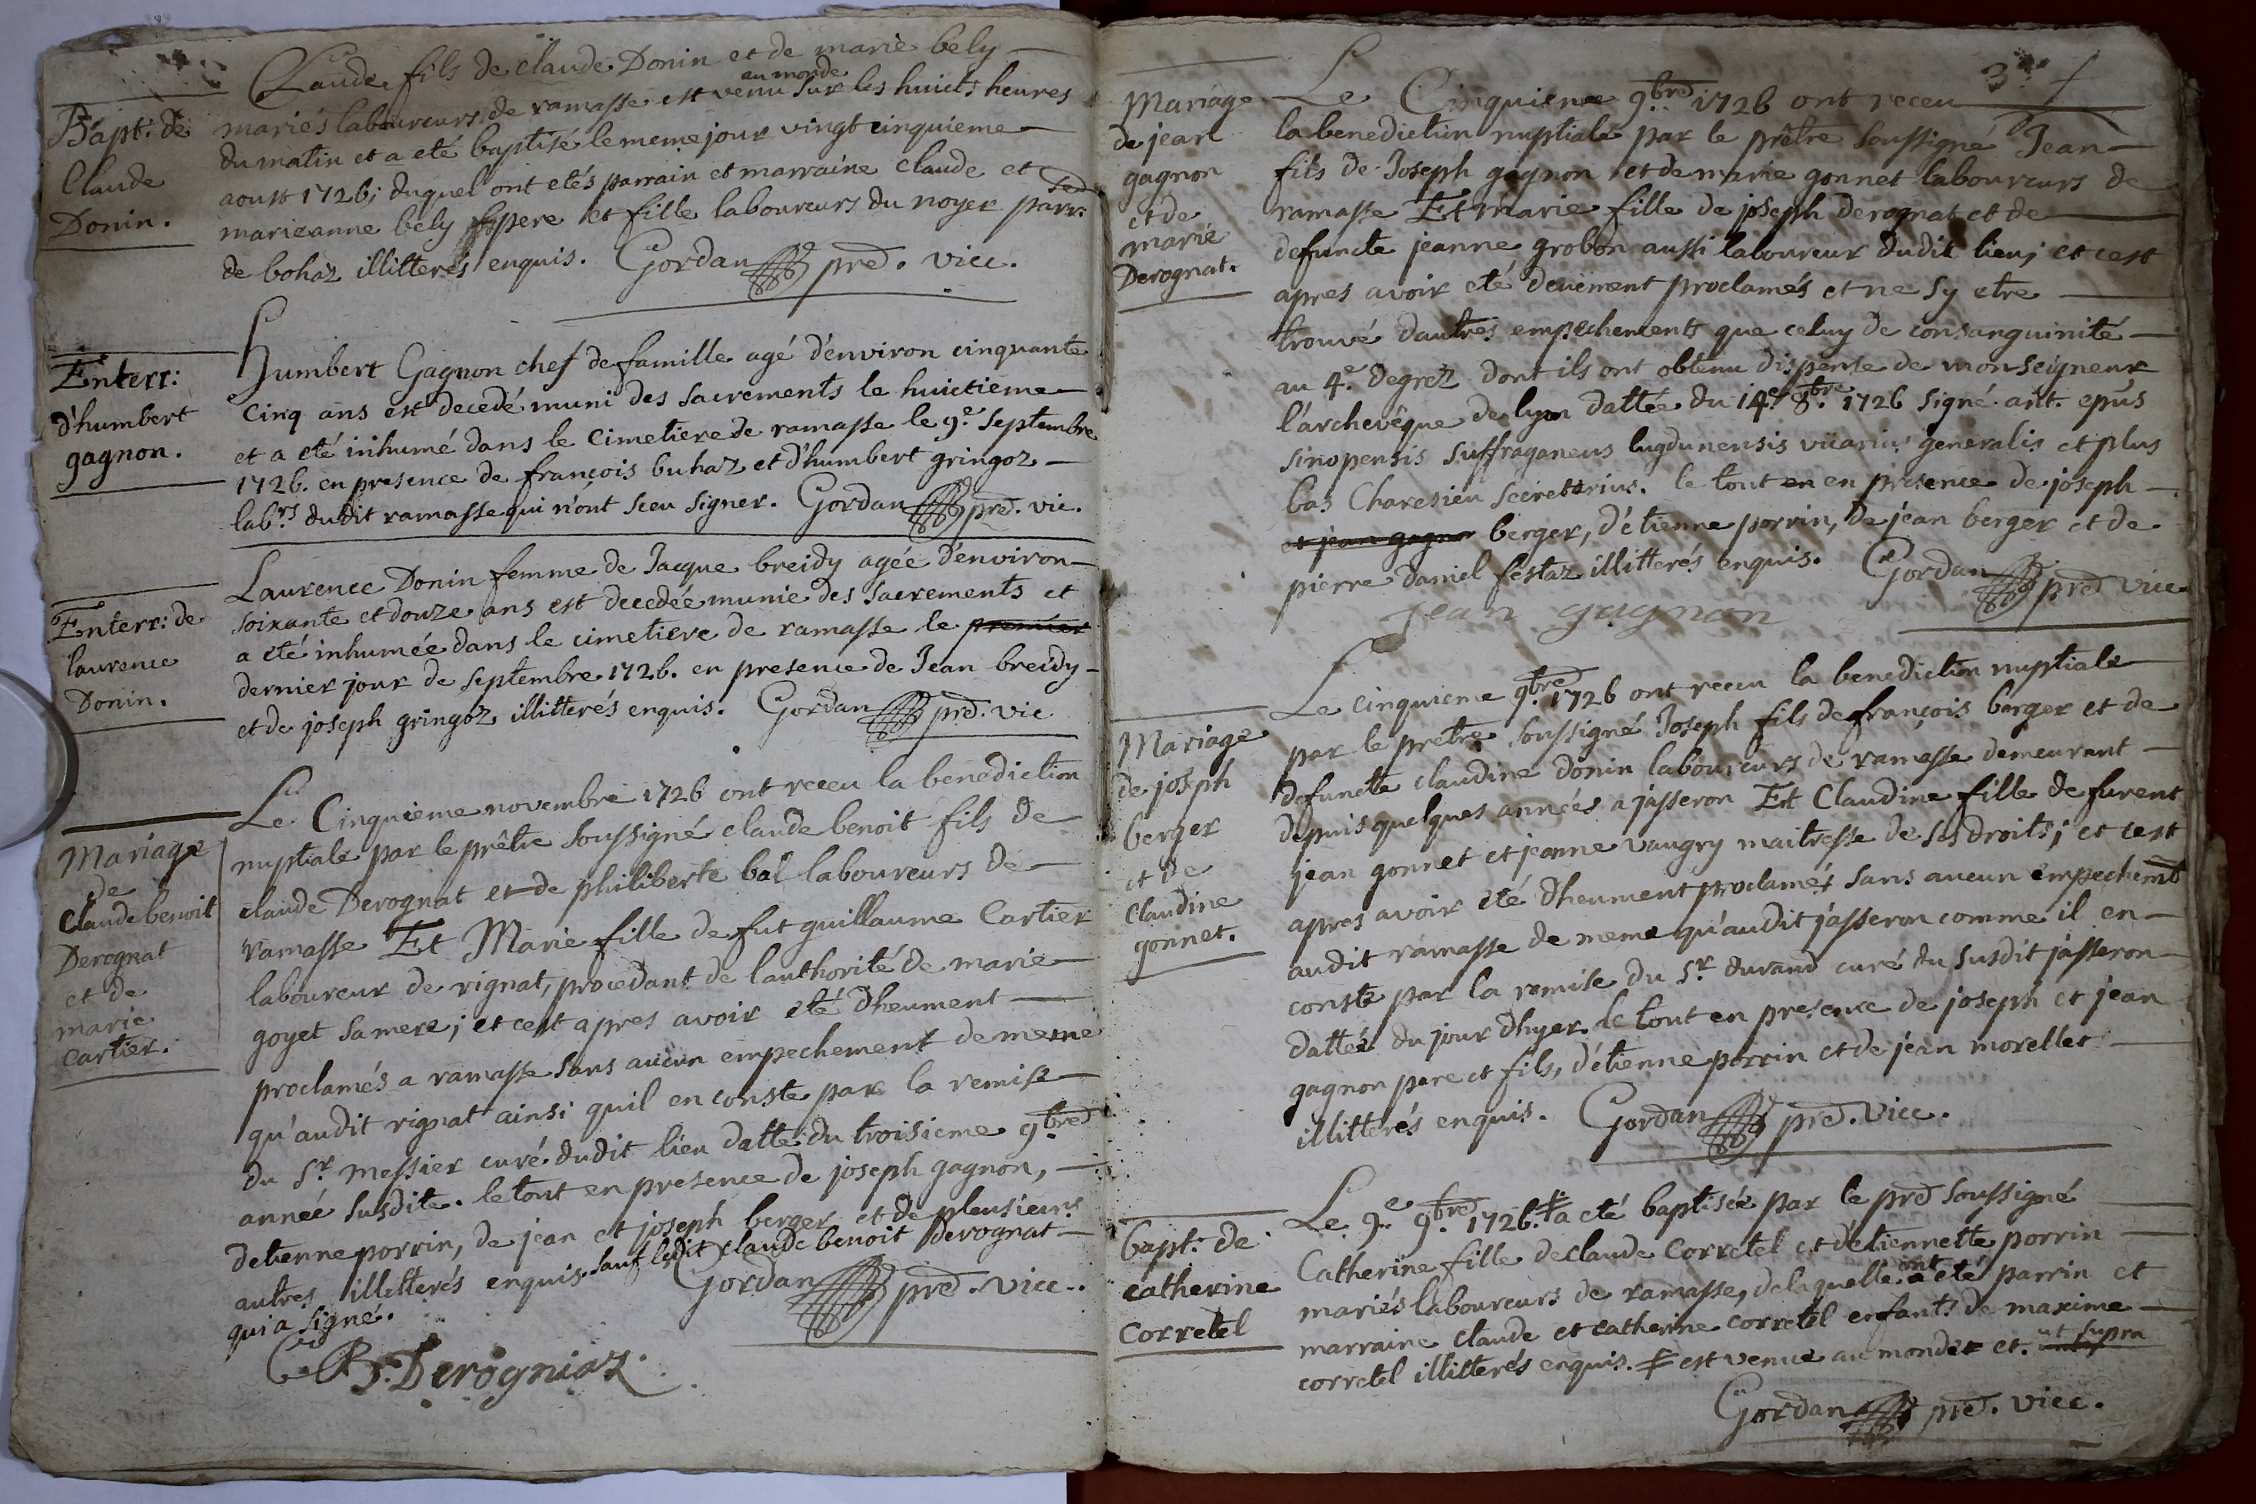 Bapt: de
Claude
Donin.
Claude fils de claude Donin et de marie bely
mariés laboureurs de ramasse est venu au monde sur les huicts heures
du matin et a eté baptisé le meme jour vingt cinquieme
aoust 1726; duquel ont etés parrain et marraine claude et
marieanne bely pere et fille laboureurs du noyer parr:
de bohaz illitterés enquis. Gordan pre. vicc.
Enterr:
d'humbert
gagnon.
Humbert Gagnon chef de famille agé d'environ cinquante
cinq ans est decedé muni des sacrements le huictieme
et a eté inhumé dans le cimetiere de ramasse le 9.e septembre
1726. en presence de françois buhaz et d'humbert gringoz
lab.rs dudit ramasse qui n'ont sceu signer. Gordan pre. vic.
Enterr: de
laurence
Donin.
Laurence Donin femme de Jacque breidy agée d'environ
soixante et douze ans est decedée munie des sacrements et
a eté inhumée dans le cimetiere de ramasse le premier
dernier jour de septembre 1726. en presence de Jean breidy
et de joseph gringoz illitterés enquis. Gordan pre. vic
Mariage
de
Claude benoit
Derognat
et de
marie
Cartier.
Le Cinquieme novembre 1726 ont receu la benediction
nuptiale par le prêtre soussigné claude benoit fils de
claude Derognat et de philiberte bal laboureurs de
ramasse Et Marie fille de fut guillaume Cartier
laboureur de rignat, procedant de l'authorité de marie
goyet sa mere; et cest apres avoir eté dheument
proclamés a ramasse sans aucun empechement de meme
qu'audit rignat ainsi quil en conste par la remise
du S.r messier curé dudit lieu datté du troisieme 9.bre
année susdite. le tout en presence de joseph gagnon,
detienne porrin, de jean et joseph berger et de plusieurs
autres illitterés enquis. sauf ledit claude benoit Derognat
qui a signé. Gordan pre. vicc.
C. B. Derogniaz.
3.me
Mariage
de jean
gagnon
et de
marie
Derognat.
Le Cinquieme 9.bre 1726 ont receu
la benediction nuptiale par le prêtre soussigné Jean
fils de Joseph gagnon et de marie gonnet laboureurs de
ramasse Et marie fille de joseph derognat et de
defuncte jeanne grobon aussi laboureur dudit lieu; et cest
apres avoir eté deuëment proclamés et ne sy etre
trouvé dautres empechements que celuy de consanguinité
au 4.e degrez dont ils ont obtenu dispense de monseigneur
l'archevêque de lyon dattée du 14.e 8.bre 1726 signé ant. epus
sinopensis suffraganeus lugdunensis vicarius generalis et plus
bas Charesieu secretarius. le tout en en presence de joseph
et jean gagnon berger, d'etienne porrin, de jean berger et de
pierre daniel festaz illitterés enquis. Gordan pre vicc
jean gagnon
Mariage
de joseph
berger
et de
Claudine
gonnet.
Le cinquieme 9.bre 1726 ont receu la benediction nuptiale
par le pretre soussigné Joseph fils de françois berger et de
defuncte claudine donin laboureurs de ramasse demeurant
depuis quelques années a jasseron Et Claudine fille de furent
jean gonnet et jeanne vaugry maitresse de ses droits; et cest
apres avoir eté dheument proclamés sans aucun empechem.t
audit ramasse de meme qu'audit jasseron comme il en
conste par la remise du S.r durand curé du susdit jasseron
dattée du jour dhyer. le tout en presence de joseph et jean
gagnon pere et fils, d'etienne porrin et de jean morellet
illitterés enquis. Gordan pre. vicc.
bapt: de
catherine
corretel
Le 9.e 9.bre 1726. a eté baptisée par le pre soussigné
Catherine fille de claude Corretel et d'etiennette porrin
mariés laboureurs de ramasse, de laquelle a ont eté parrin et
marraine claude et catherine corretel enfants de maxime
corretel illitterés enquis. est venue au monde et. ut supra
Gordan pre. vicc.